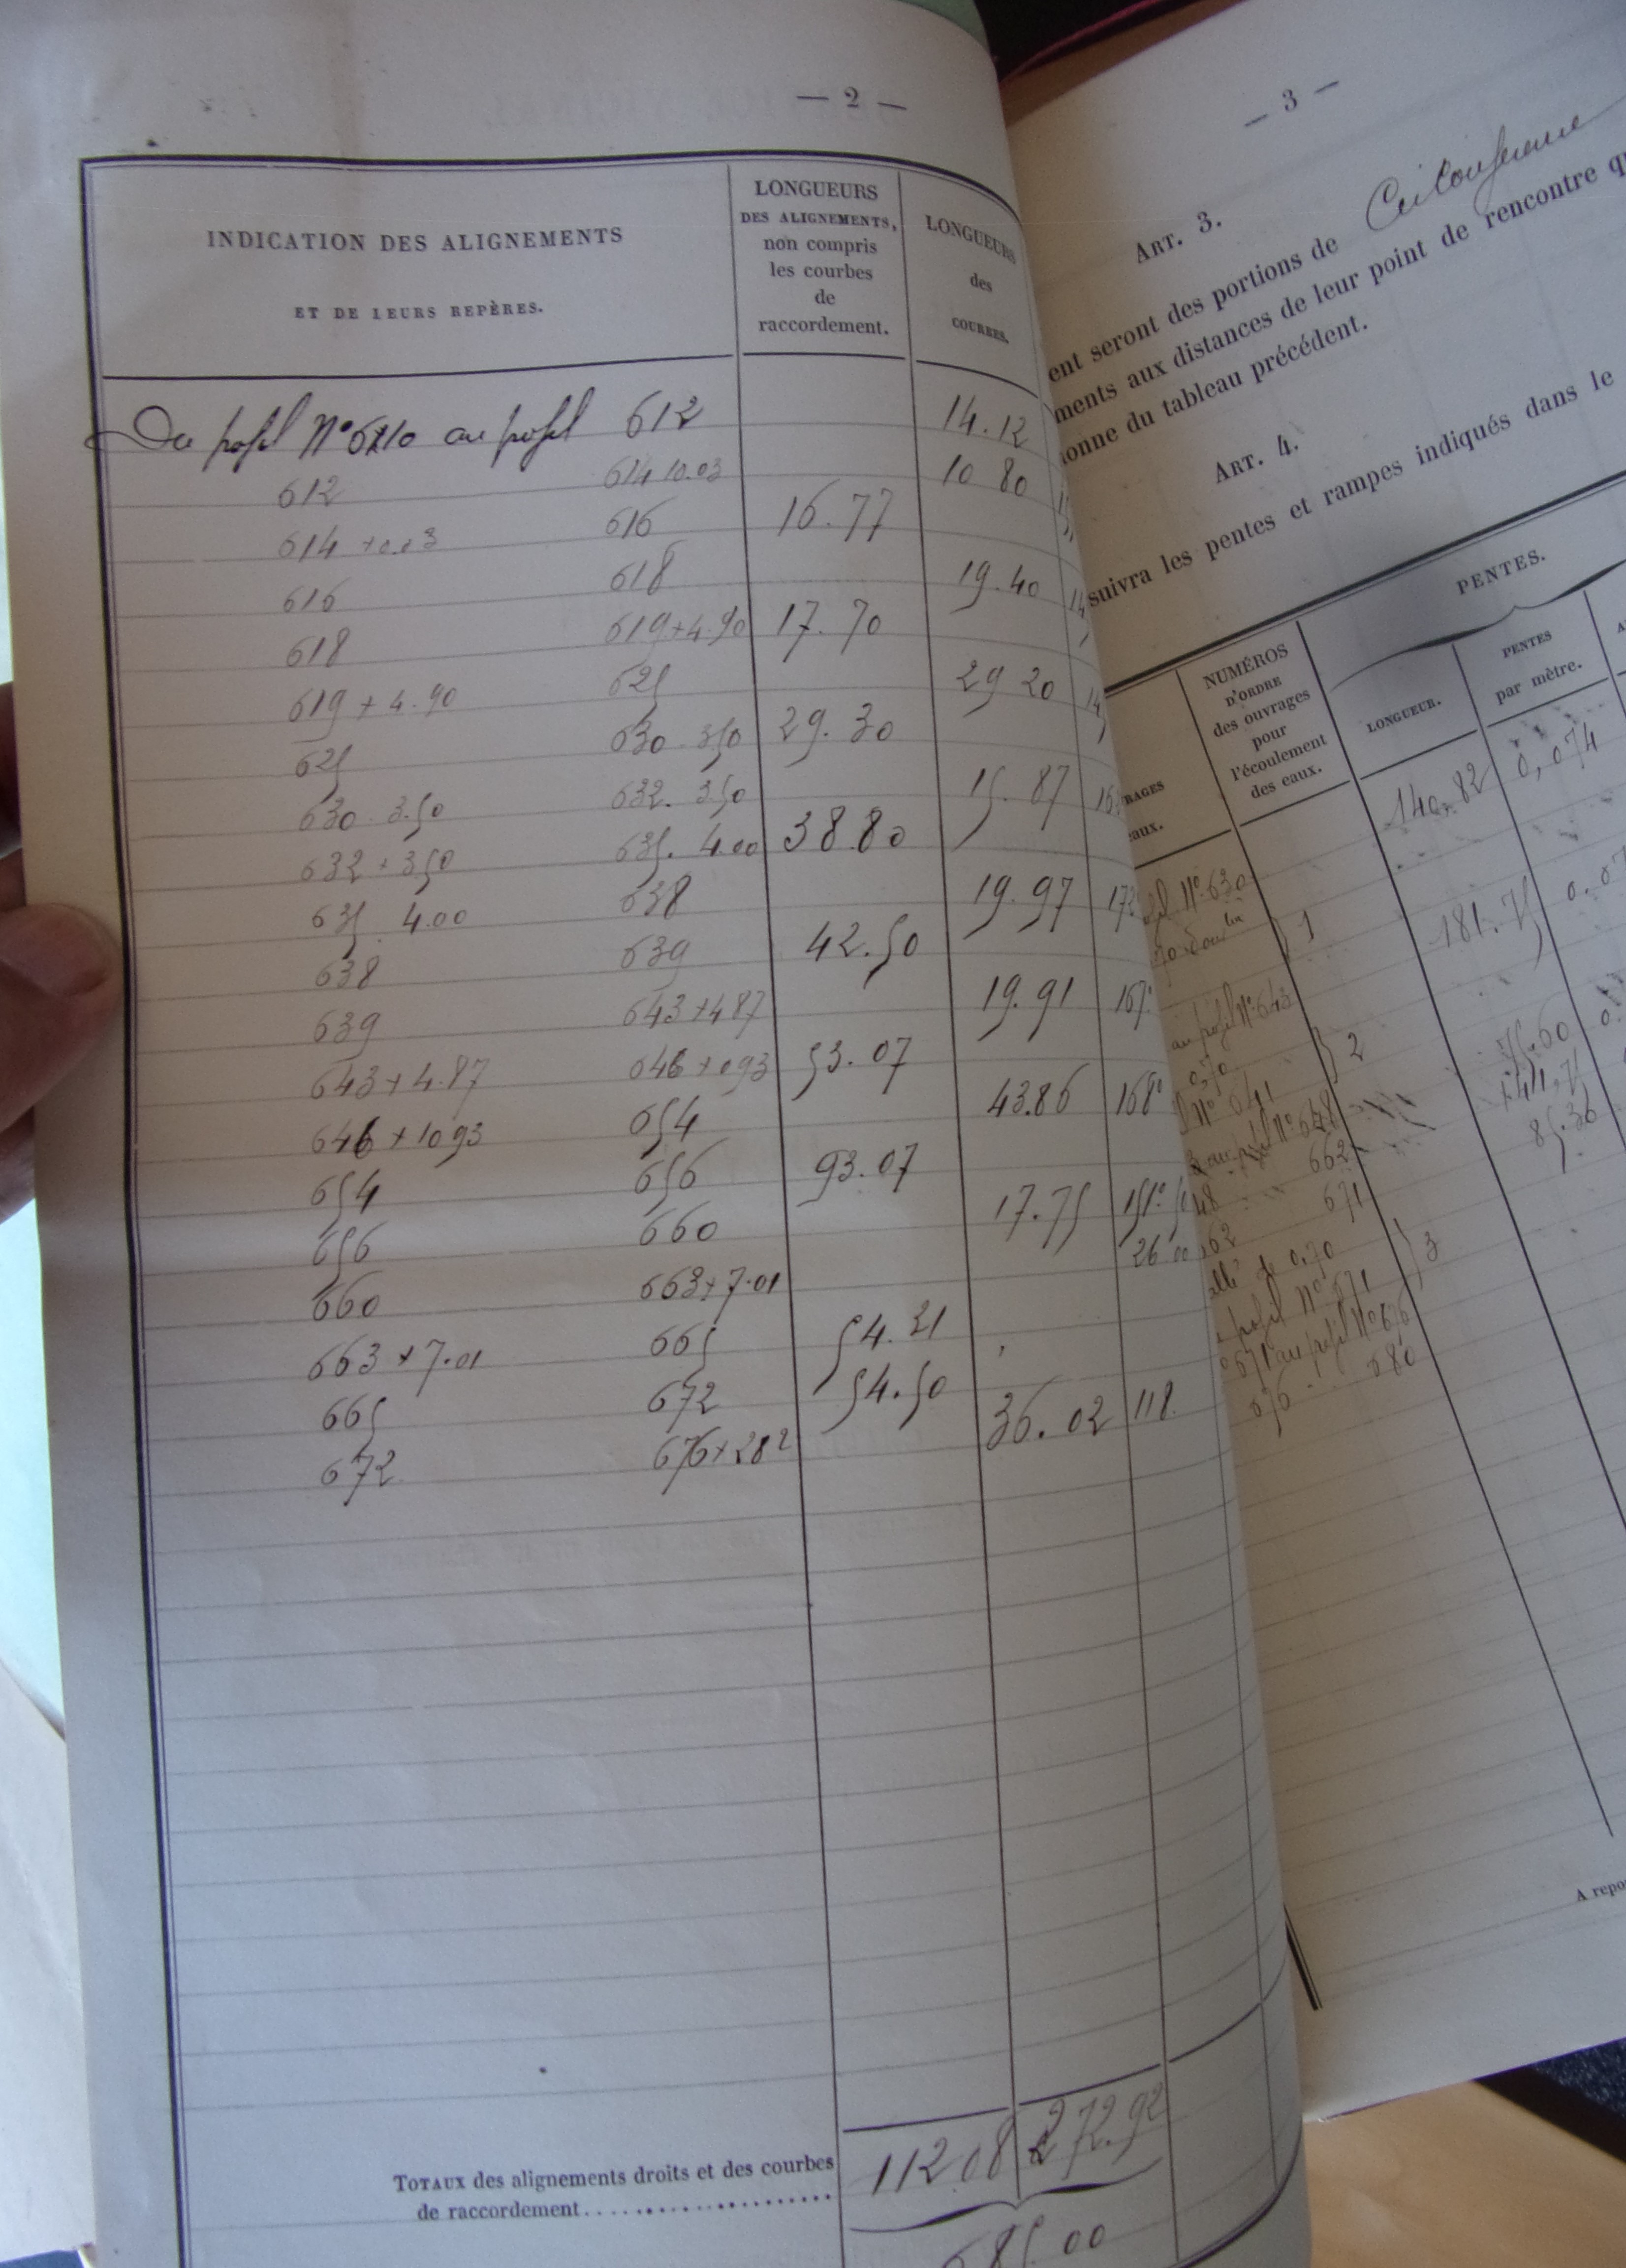 — 2 —
INDICATION DES ALIGNEMENTS
ET DE LEURS REPÈRES.
LONGUEURS
DES ALIGNEMENTS,
non compris
les courbes
de
raccordement.
LONGUEURS
des
COURBES.
Du profil N° 610 au profil 612 14.12
612 614 10.03 10 80
614 +0.03 616 16.77
616 618 19.40
618 619+4.90 17.70
619 + 4.90 625 29 20
625 630 . 3.50 29.30
630 . 3.50 632 . 3.50 15.87
632 + 3.50 635 . 4.00 38.80
635 4.00 638 19.97
638 639 42.50
639 643+487 19.91
643+4.87 646+093 53.07
646 + 1093 654 43.86
654 656 93.07
656 660 17.75
660 663+7.01
663 + 7.01 665 54.21
665 672 54.50
672 676+282 36.02 118.
TOTAUX des alignements droits et des courbes
de raccordement
112 08 272.92
685.00
— 3 —
ART. 3.
ent seront des portions de Circonférence
ments aux distances de leur point de rencontre
onne du tableau précédent.
ART. 4.
suivra les pentes et rampes indiqués dans le
NUMÉROS
D'ORDRE
des ouvrages
pour
l'écoulement
des eaux.
PENTES.
LONGUEUR.
PENTES
par mètre.
RAGES
eaux.
140.82 0,074
N° 630
1
181.75
au profil N° 643
0,70
2
662
671
85.36
de 0.70
profil N° 671
3
671 au profil N° 676
676 680
A repo